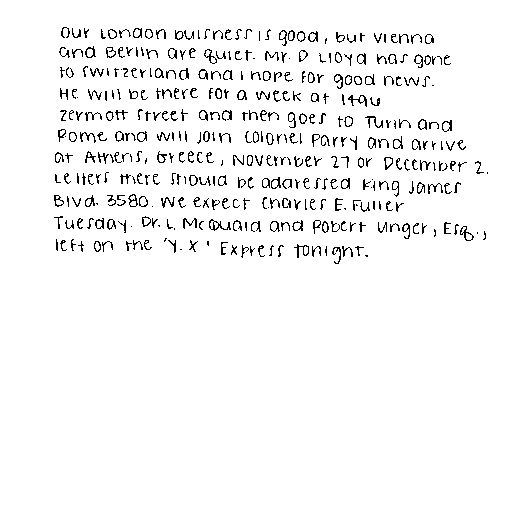 Our London buisness is good, but Vienna
and Berlin are quiet. Mr. D Lloyd has gone
to Switzerland and i hope for good news.
He will be there for a week at 1496
Zermott Street and then goes to Turin and
Rome and will join Colonel Parry and arrive
at Athens, Greece, November 27 or December 2.
Letters there should be addressed King James
Blvd. 3580. We expect Charles E. Fuller
Tuesday. Dr. L. McQuaid and Robert Unger, Esq.,
left on the 'Y.X' Express tonight.